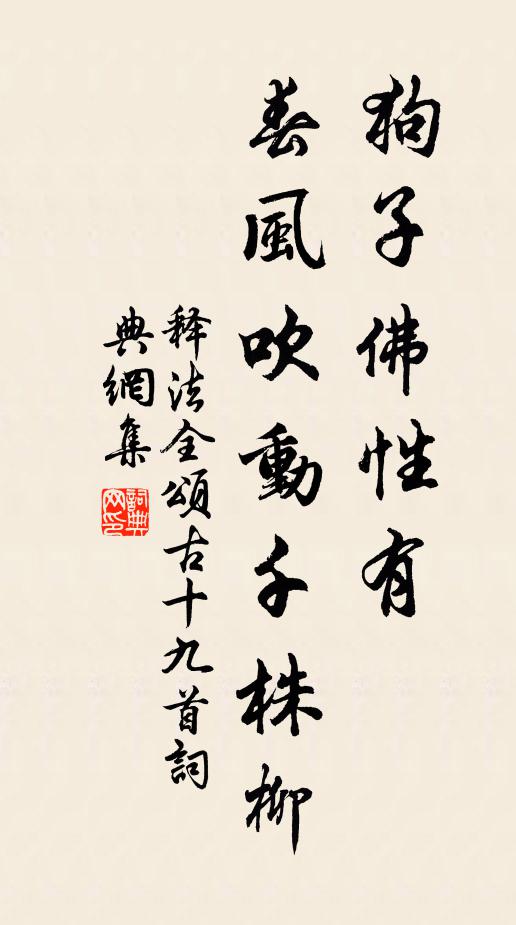 狗子佛性有
春風吹動千株柳
释法全頌古十九首詞
典網集
詞典
网印